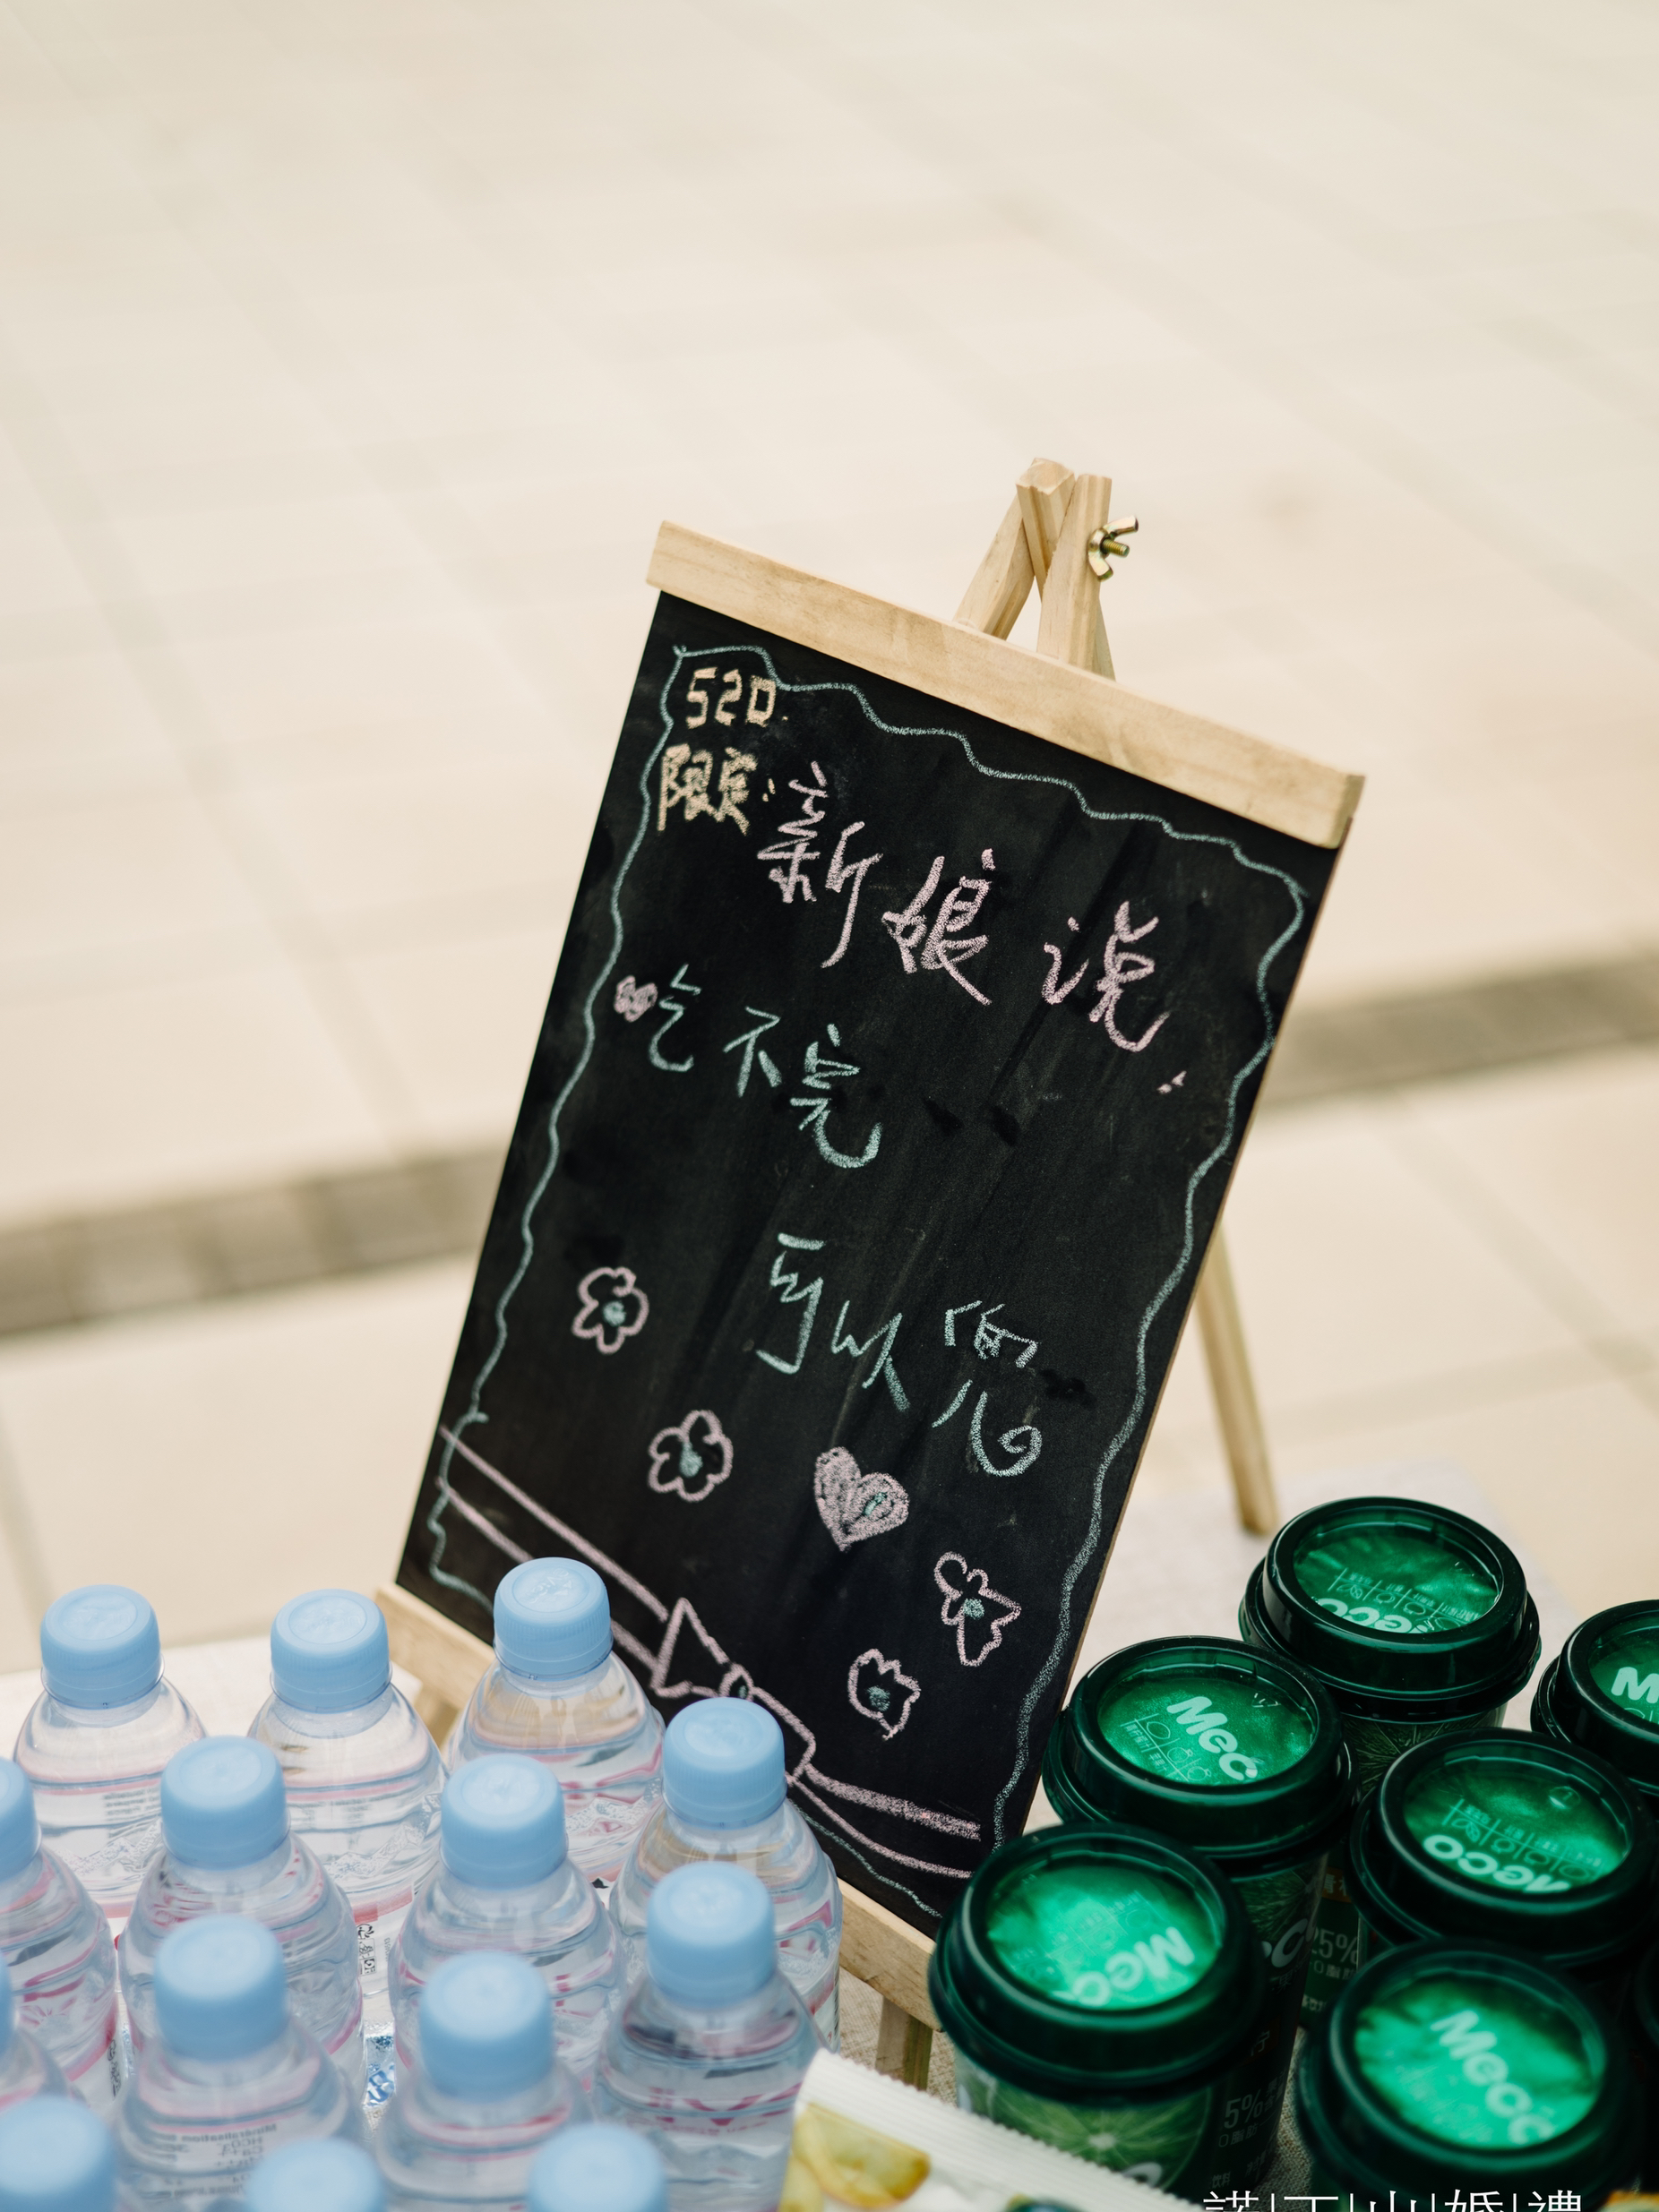 520
限定
新娘说
吃不完
可以兜
Meco
Meco
Meco
Meco
Meco
5%
諾|丁|山|婚|禮